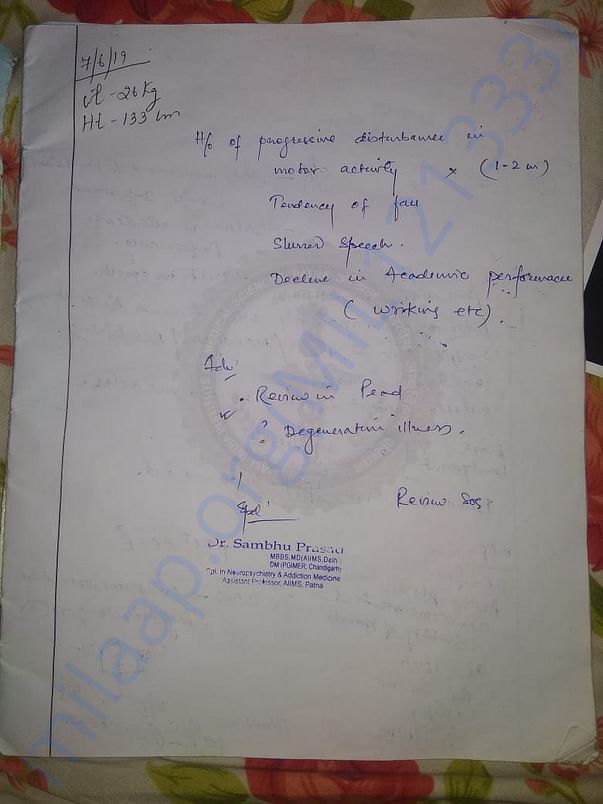 7/6/19
wt - 26 Kg
Ht - 133 cm
H/o of progressive disturbance in
motor activity × (1-2 m)
Tendency of fall
Slurred Speech.
Decline in Academic performance
(writing etc).
Adv
. Review in Pead
? Degenerative illness.
Review Sos
Dr. Sambhu Prasad
MBBS, MD(AIIMS, Delhi)
DM (PGIMER, Chandigarh)
Spl. In Neuropsychiatry & Addiction Medicine
Assistant Professor, AIIMS, Patna
milaap.org/MIL121333